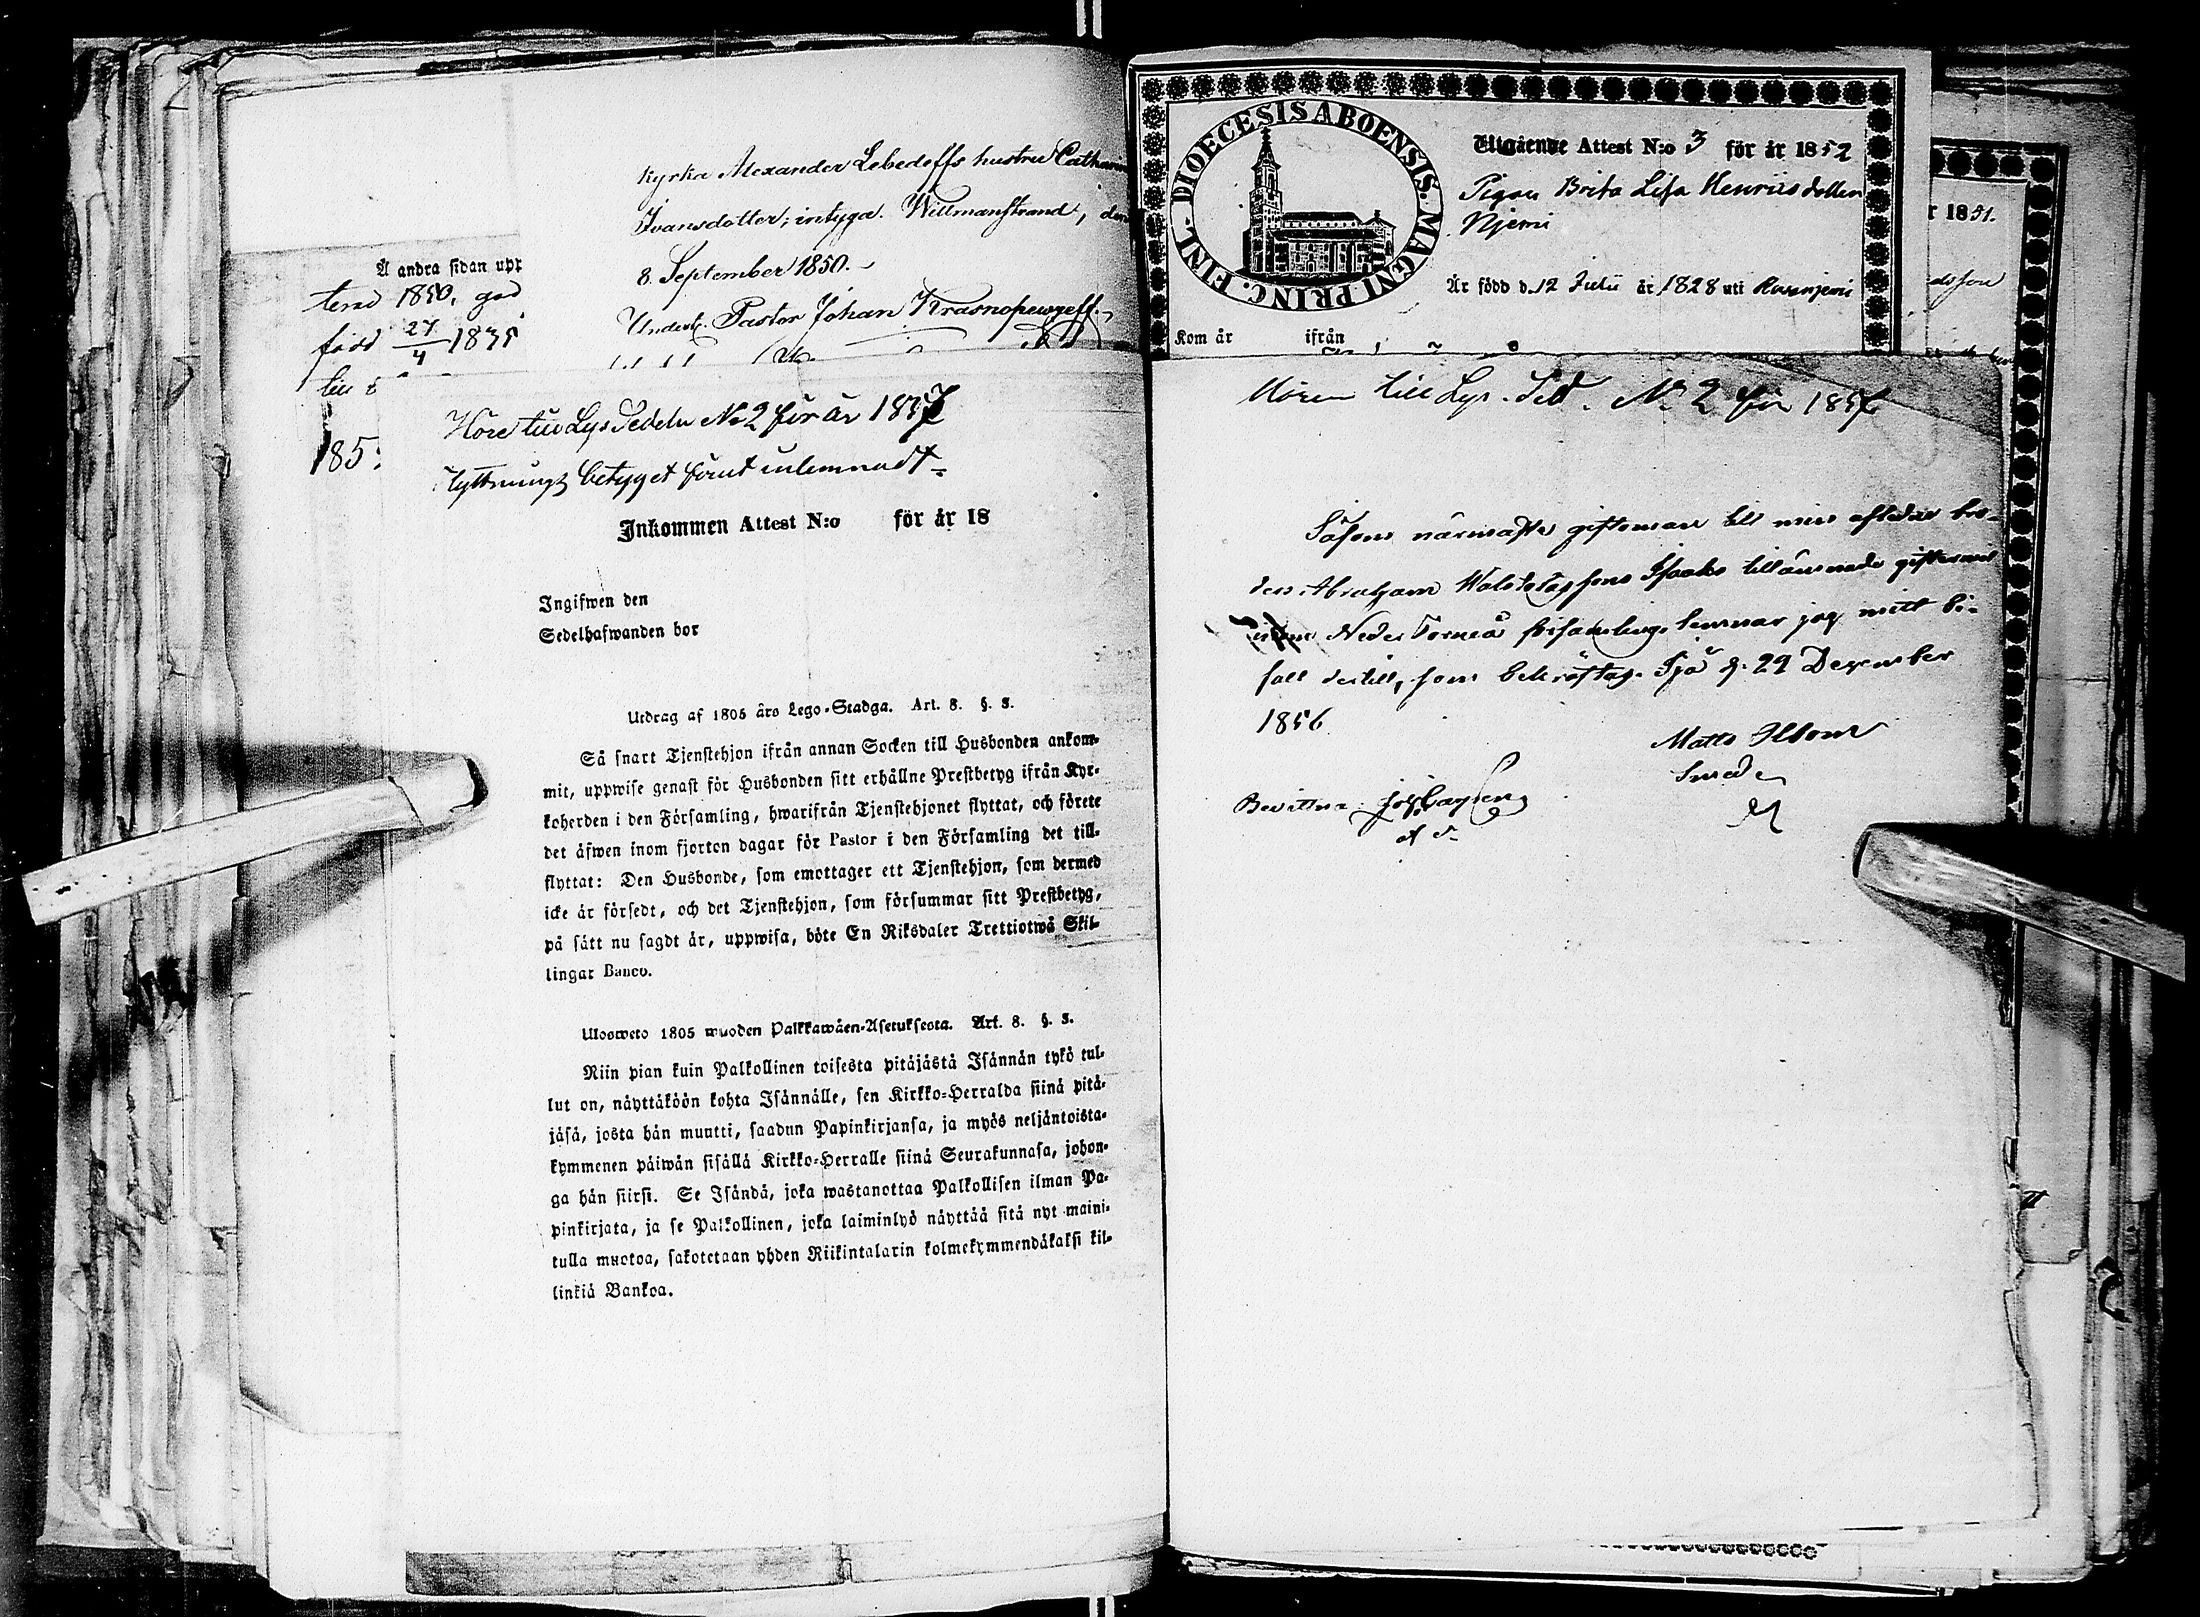 kyrka Alexander Lebedeffs hustru Catharin
Ivansdotter; intyga. Willmanstrand, den
8 September 1850.
Underst. Pastor Johan Krasnopewzeff.
Å andra sidan upp
tend 1850, god
född 27/4 1835
till
185
Höre till Lys Sedeln No 2 för år 1857
flyttnings betyget förut inlemnadt.
Inkommen Attest N:o för år 18
Ingifwen den
Sedelhafwanden bor
Utdrag af 1805 års Lego-Stadga. Art. 8. §. 3.
Så snart Tjenstehjon ifrån annan Socken till Husbonden ankom-
mit, uppwise genast för Husbonden sitt erhållne Prestbetyg ifrån Kyr-
koherden i den Församling, hwarifrån Tjenstehjonet flyttat, och förete
det äfwen inom fjorton dagar för Pastor i den Församling det till-
flyttat: Den Husbonde, som emottager ett Tjenstehjon, som dermed
icke är försedt, och det Tjenstehjon, som försummar sitt Prestbetyg,
på sätt nu sagdt är, uppwisa, böte En Riksdaler Trettiotwå Skil-
lingar Banco.
Ulosweto 1805 wuoden Palkkawäen-Asetuksesta. Art. 8. §. 3.
Niin pian kuin Palkollinen toisesta pitäjästä Isännän tykö tul-
lut on, näyttäköön kohta Isännälle, sen Kirkko-Herralda siinä pitä-
jäsä, josta hän muutti, saadun Papinkirjansa, ja myös neljäntoista-
kymmenen päiwän sisällä Kirkko-Herralle siinä Seurakunnasa, johon-
ga hän siirsi. Se Isändä, joka wastanottaa Palkollisen ilman Pa-
pinkirjata, ja se Palkollinen, joka laiminlyö näyttää sitä nyt maini-
tulla muotoa, sakotetaan yhden Riikintalarin kolmekymmendäkaksi kil-
linkiä Bankoa.
DIOECESIS ABOENSIS. MAGNI PRINC. FINL.
Utgående Attest N:o 3 för år 1852
Pigan Brita Lisa Henriksdotter
Njemi
Är född d. 12 Julii år 1828 uti Rovanjemi
Kom år ifrån
r 1851.
dsson
Hörer till Lys. Sed. No 2 för 1857
Såsom närmaste giftoman till min afledne bro-
ders Abraham sons Isaks tillämnade giftermål
Neder Torneå församling lemnar jag mitt bi-
fall dertill, som bekräftas. d. 29 December
1856
Matts
Smed
M
Bevittna